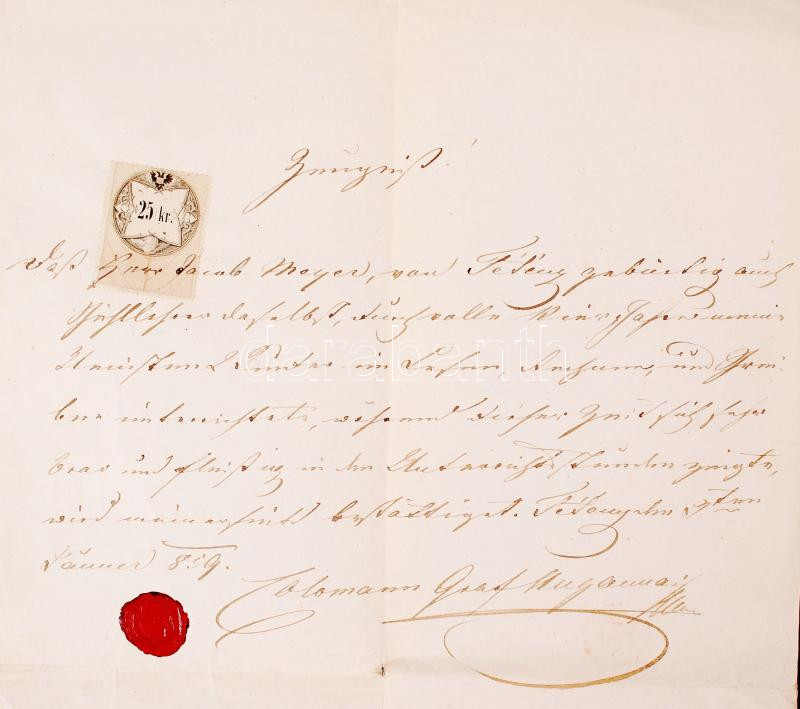 Zeugniß!
25 kr.
Daß Herr Jacob Meyer, von Tétény gebürtig auch
Schullehrer daselbst, durch volle vier Jahre meine
kleinsten 2 Kinder im Lesen, Rechnen, und Schrei-
ben unterrichtete, während dieser Zeit sich sehr
brav und fleißig in den Unterrichts Stunden zeigte,
wird meinerseits bestättiget. Tétény den 3ten
Jänner 859.
Colomann Graf
darabanth